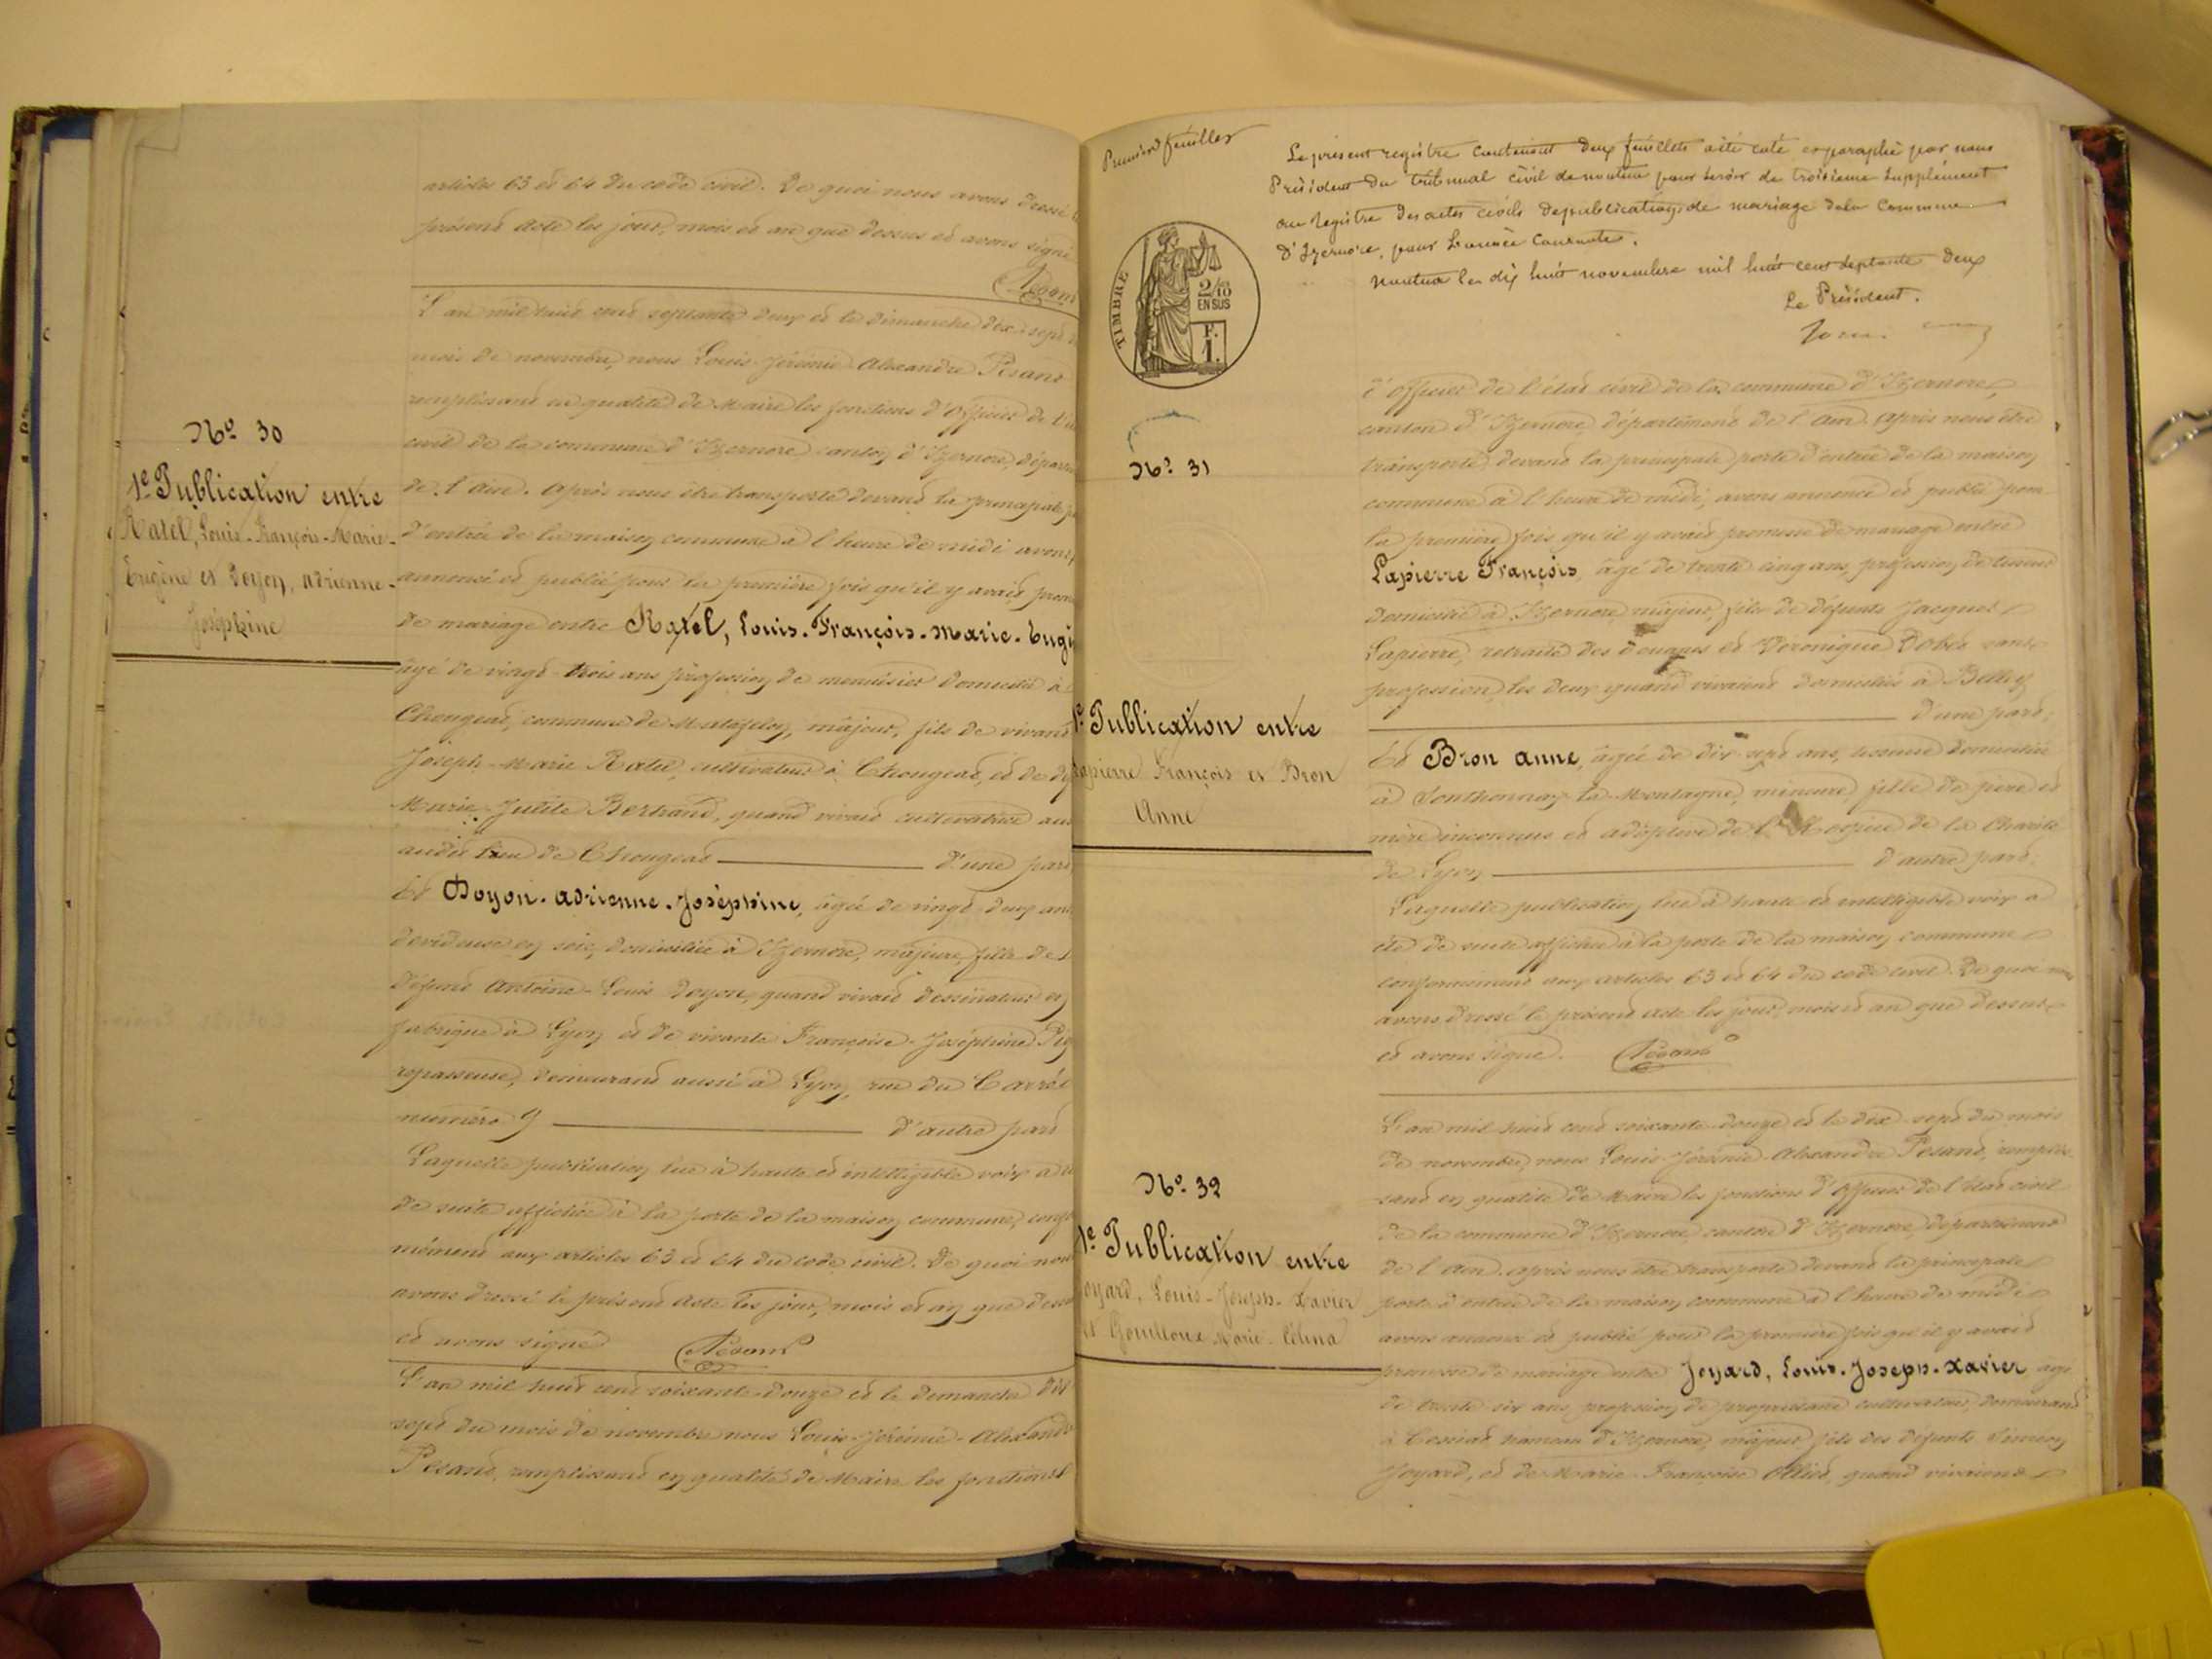 articles 63 et 64 du code civil. De quoi nous avons dressé
présent acte les jour, mois et an que dessus et avons signé
Pesant
L'an mil huit cent septante deux et le dimanche dix-sept
mois de novembre, nous Louis-Jérémie-Alexandre Pesant
remplissant en qualité de Maire les fonctions d'Officier de
civil de la commune d'Izernore canton d'Izernore, départ
de l'Ain. Après nous être transporté devant la principale
d'entrée de la maison commune à l'heure de midi avons
annoncé et publié pour la première fois qu'il y avait
de mariage entre Ratel, Louis-François-Marie-Eugè
âgé de vingt-trois ans profession de menuisier domicilié à
Chougeat, commune de Matafelon, majeur, fils de vivant
Joseph-Marie Ratel, cultivateur à Chougeat, et de
Marie-Julite Bertrand, quand vivait cultivatrice
audit lieu de Chougeat d'une part
Et Doyon-Adrienne-Joséphine, âgée de vingt-deux ans
dévideuse en soie, domiciliée à Izernore, majeure, fille de
défunt Antoine-Louis Doyon, quand vivait dessinateur en
fabrique à Lyon et de vivante Françoise-Joséphine
repasseuse, demeurant aussi à Lyon, rue du
numéro 9 d'autre part
Laquelle publication lue à haute et intelligible voix a
de suite affichée à la porte de la maison commune,
mément aux articles 63 et 64 du code civil. De quoi nous
avons dressé le présent acte les jour, mois et an que
et avons signé Pesant
L'an mil huit cent soixante-douze et le dimanche dix
sept du mois de novembre nous Louis-Jérémie-Alexandre
Pesant, remplissant en qualité de Maire les fonctions
No. 30
1e Publication entre
Ratel, Louis-François-Marie-
Eugène et Doyon, Adrienne-
Joséphine
Premier feuillet
Le présent registre contenant deux feuillets a été coté et paraphé par nous
Président du tribunal civil de nantua pour servir de troisième supplément
au registre des actes civils de publications de mariage de la Commune
d'Izernore, pour l'année courante.
nantua le dix huit novembre mil huit cent septante deux
Le Président.
TIMBRE
2/10
EN SUS
F.
1.
d'Officier de l'état civil de la commune d'Izernore,
canton d'Izernore, département de l'Ain. Après nous être
transporté devant la principale porte d'entrée de la maison
commune à l'heure de midi, avons annoncé et publié pour
la première fois qu'il y avait promesse de mariage entre
Lapierre François, âgé de trente cinq ans, profession de
domicilié à Izernore, majeur, fils de défunts Jacques
Lapierre, retraité des douanes et Véronique sans
profession, les deux quand vivaient domiciliés à Belley
d'une part;
Et Bron Anne, âgée de dix sept ans, domiciliée
à Sonthonnax-la-Montagne, mineure, fille de père et
mère inconnus et adoptive de l'Hospice de la Charité
de Lyon d'autre part;
Laquelle publication lue à haute et intelligible voix a
été de suite affichée à la porte de la maison commune
conformément aux articles 63 et 64 du code civil. De quoi nous
avons dressé le présent acte les jour, mois et an que dessus
et avons signé. Pesant
L'an mil huit cent soixante-douze et le dix-sept du mois
de novembre, nous Louis-Jérémie-Alexandre Pesant, remplis-
sant en qualité de Maire les fonctions d'Officier de l'état civil
de la commune d'Izernore, canton d'Izernore, département
de l'Ain. Après nous être transporté devant la principale
porte d'entrée de la maison commune à l'heure de midi
avons annoncé et publié pour la première fois qu'il y avait
promesse de mariage entre Joyard, Louis-Joseph-Xavier âgé
de trente six ans, profession de propriétaire cultivateur, demeurant
à Cessiat hameau d'Izernore, majeur, fils des défunts Simeon
Joyard, et de Marie-Françoise quand vivaient
No. 31
1e Publication entre
Lapierre François et Bron
Anne
No. 32
1e Publication entre
Joyard, Louis-Joseph-Xavier
et Gouilloux Marie-Célina